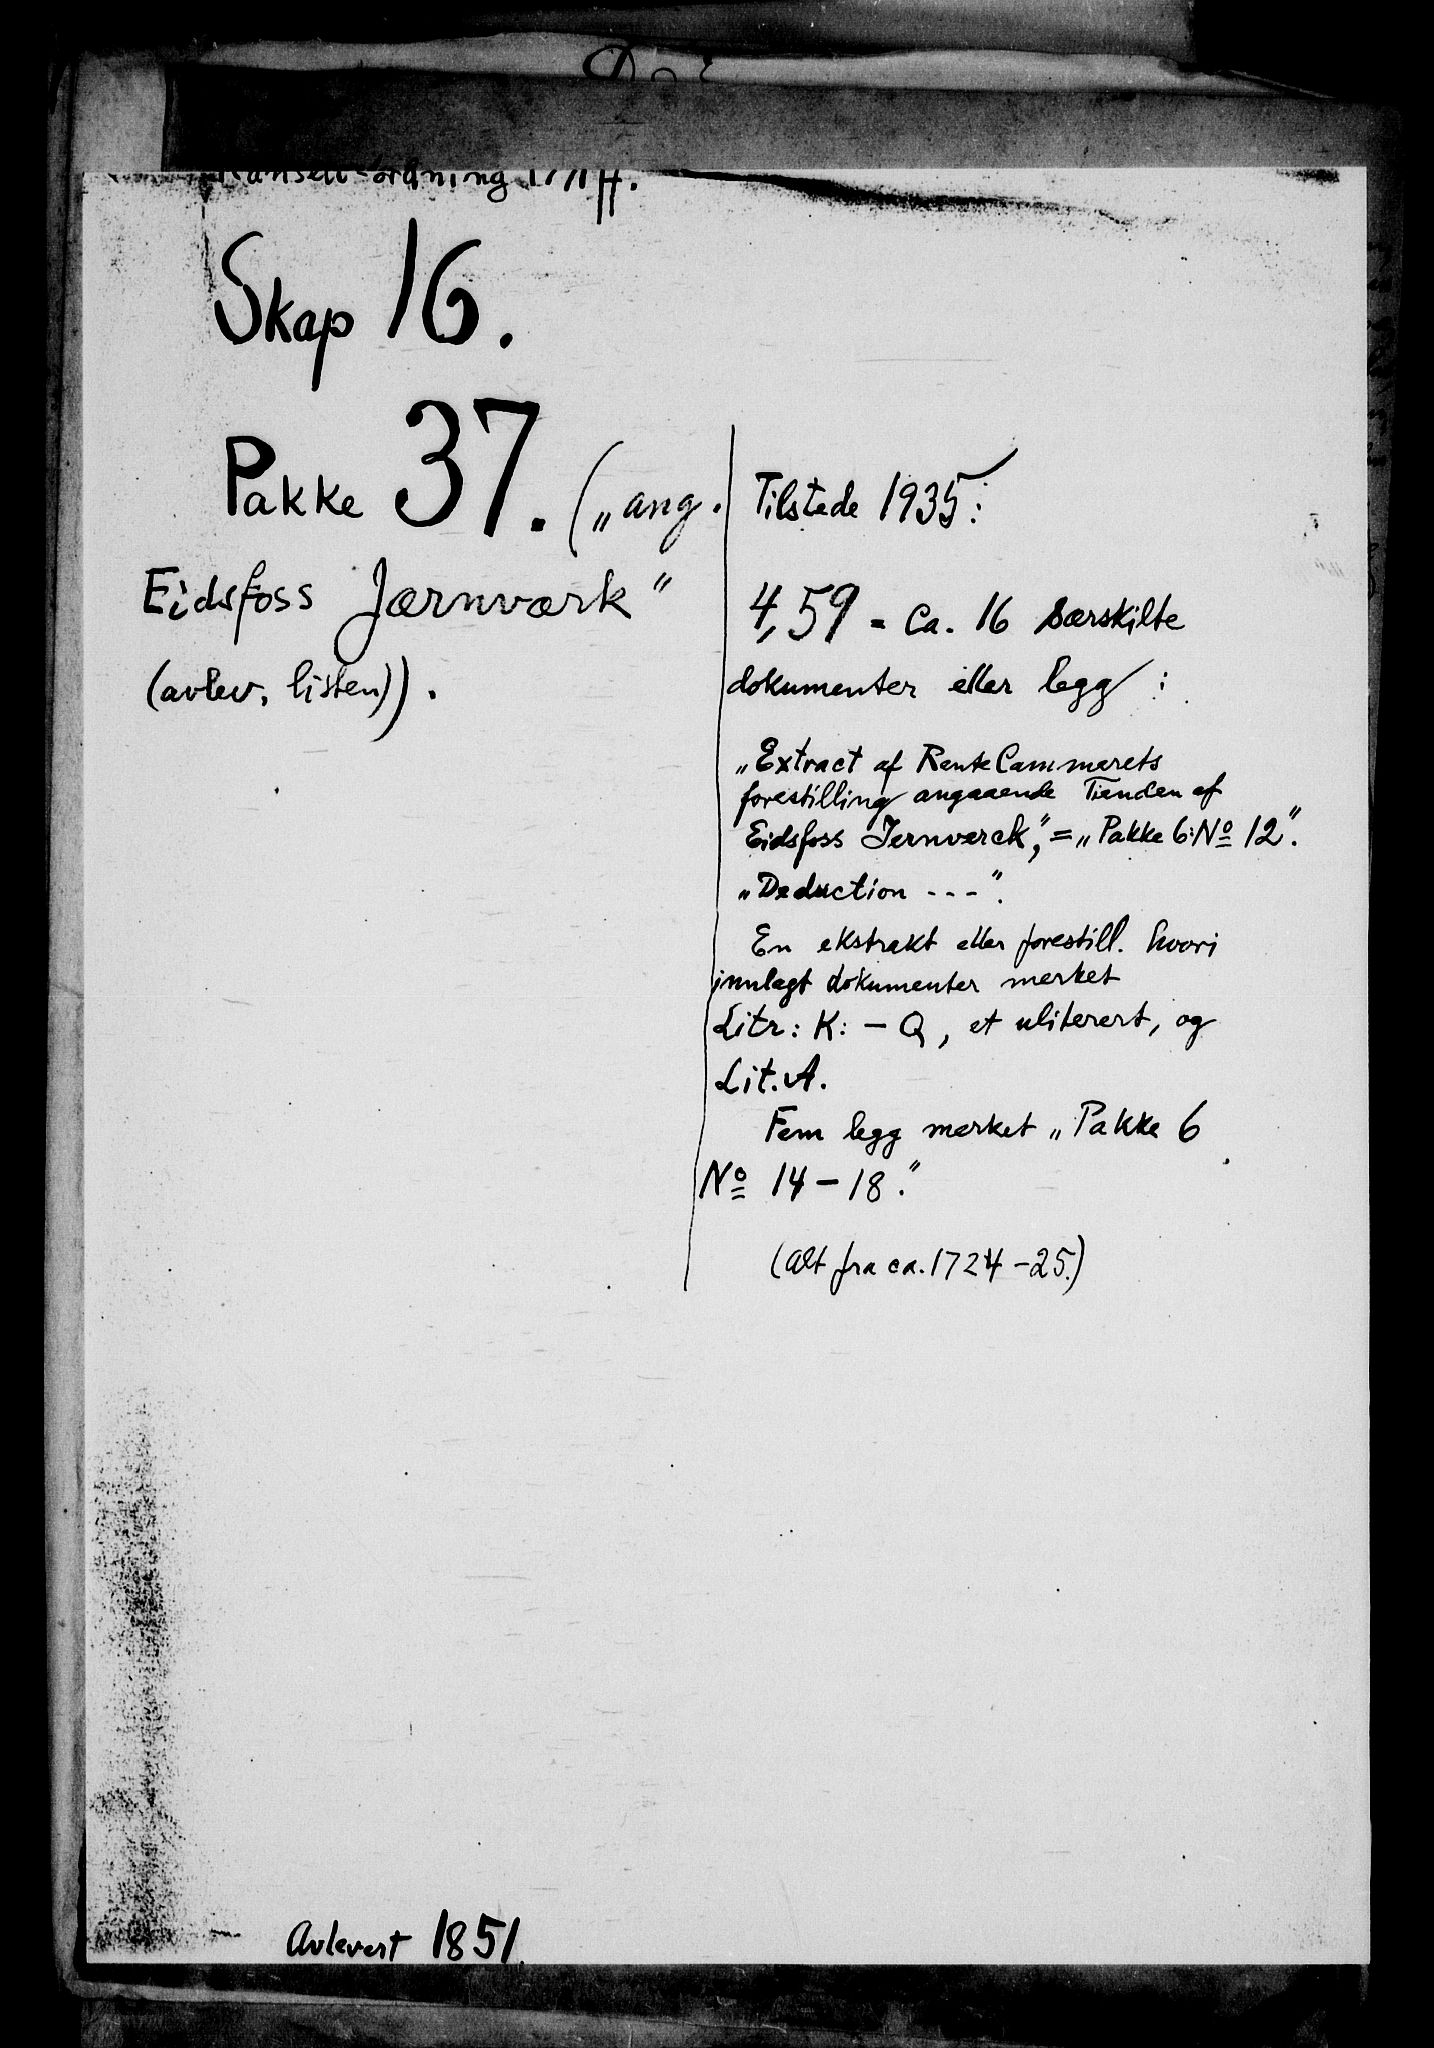 Skap 16.
Pakke 37. („ang.
Eidsfoss Jærnværk”
(avlev. listen)).
Tilstede 1935:
4,59 = ca. 16 særskilte
dokumenter eller legg :
„Extract af RenteCammerets
forestilling angaaende Tienden af
Eidsfoss Jernverck”, = „Pakke 6: No 12”.
„Deduction ---”.
En ekstrakt eller forestill. hvori
innlagt dokumenter merket
Litr: K: – Q, et uliterert, og
Lit. A.
Fem legg merket „Pakke 6
No 14 – 18.”
(alt fra ca. 1724 – 25.)
Avlevert 1851.